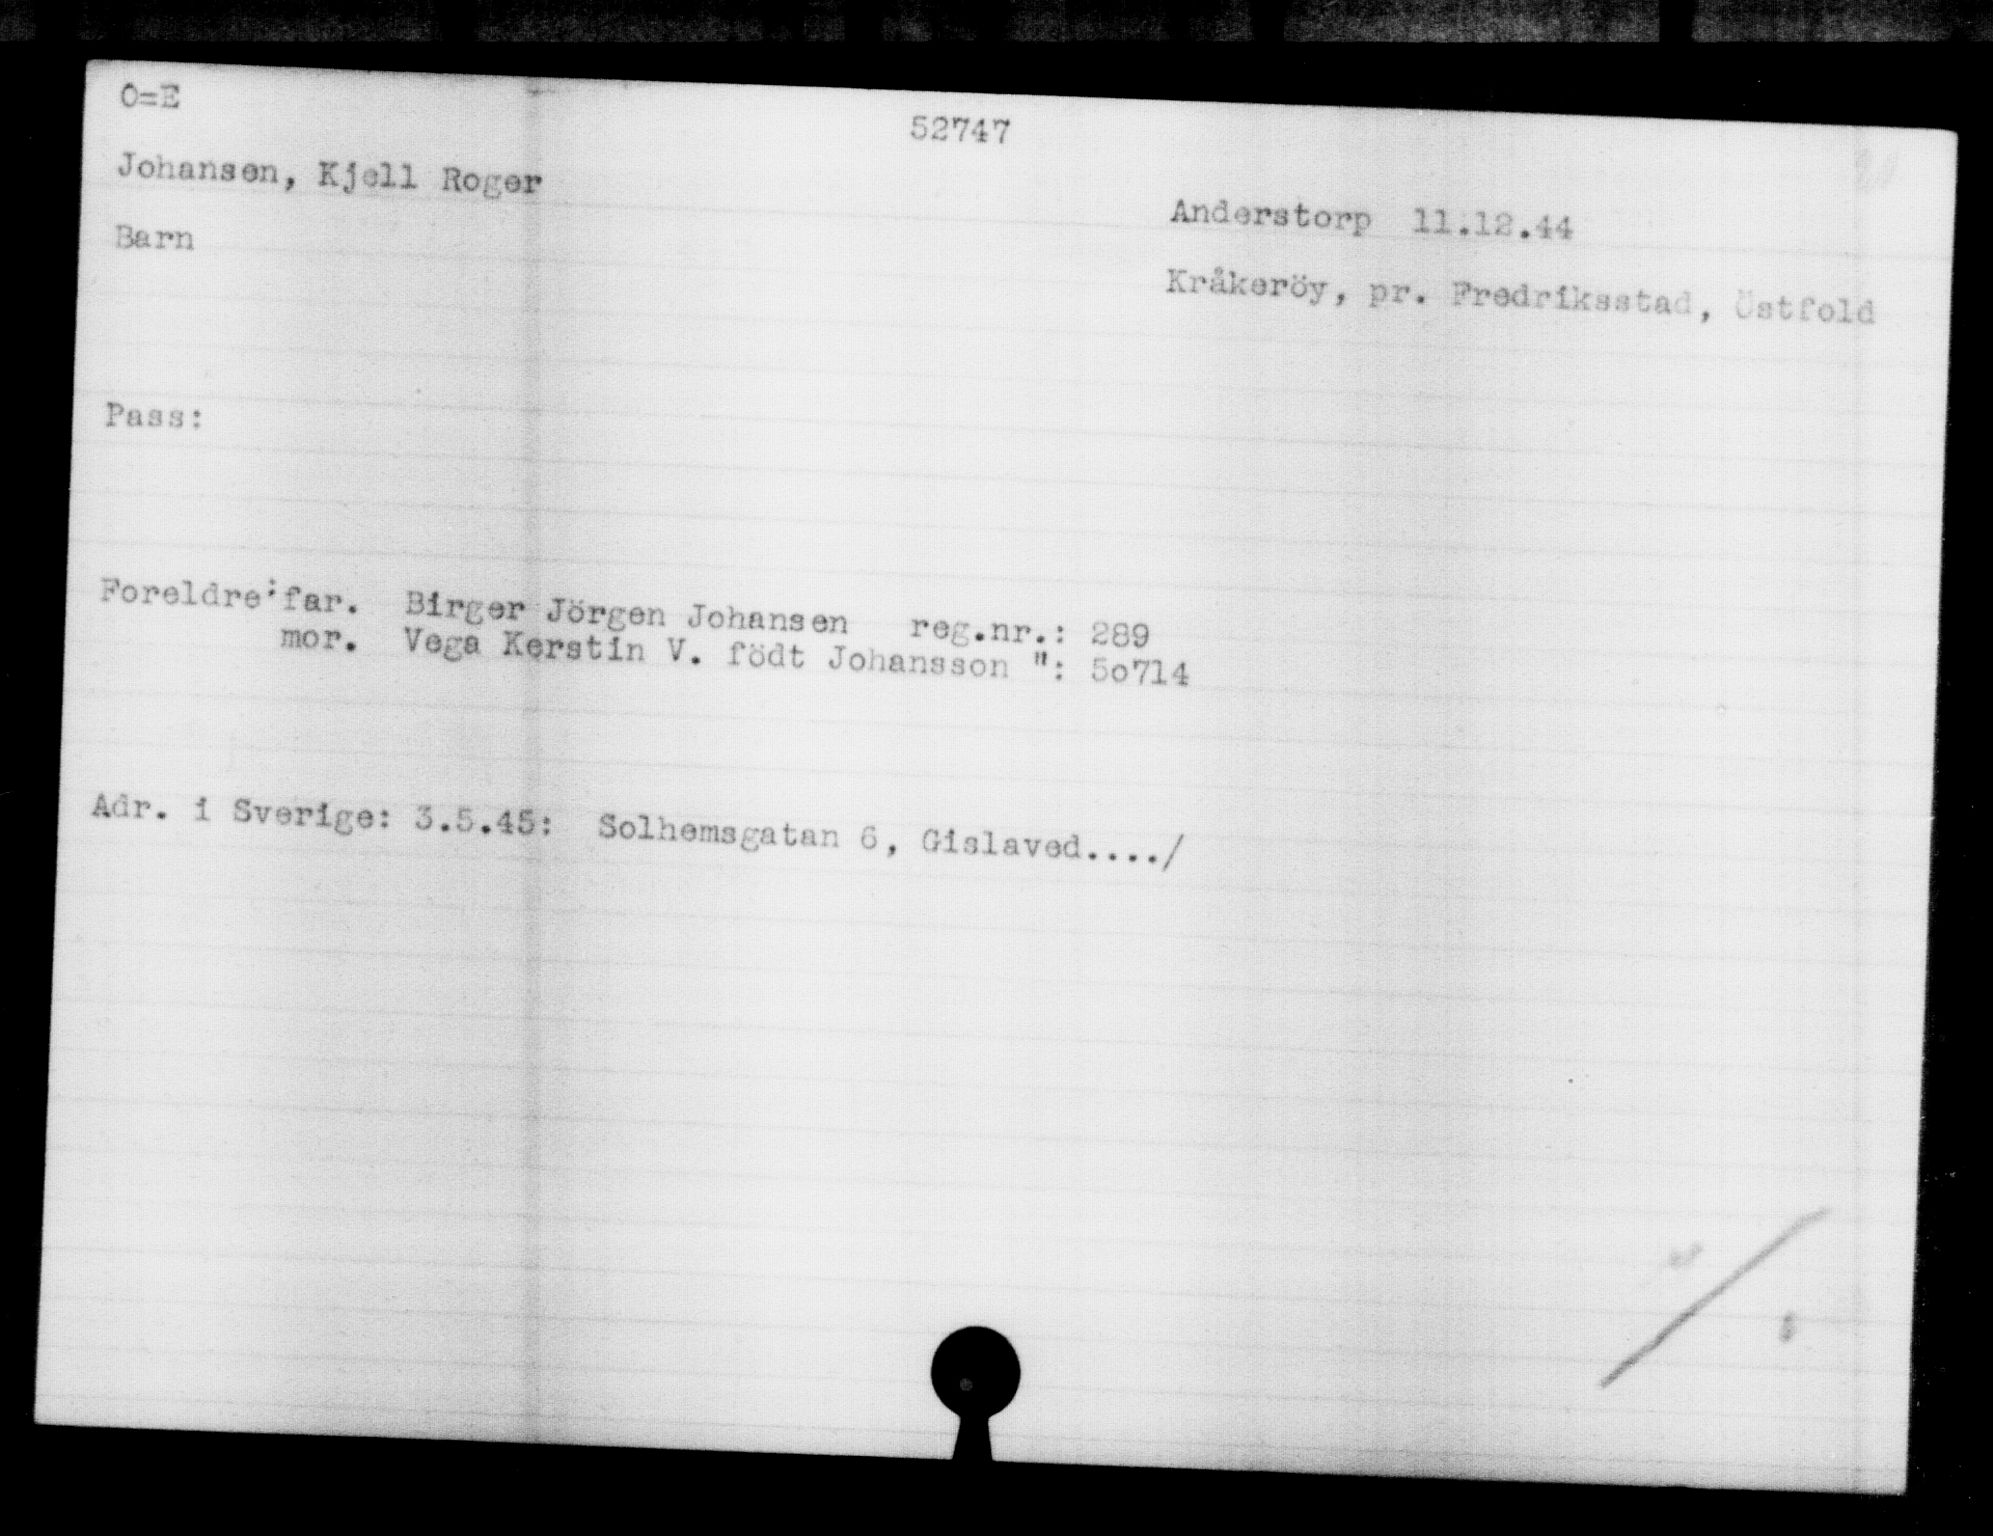 O=E
52747
Johansen, Kjell Roger
Anderstorp 11.12.44
Barn
Kråkeröy, pr. Fredriksstad, Östfold
Pass:
Foreldre:far. Birger Jörgen Johansen reg.nr.: 289
mor. Vega Kerstin V. födt Johansson ": 5o714
Adr. i Sverige: 3.5.45: Solhemsgatan 6, Gislaved..../